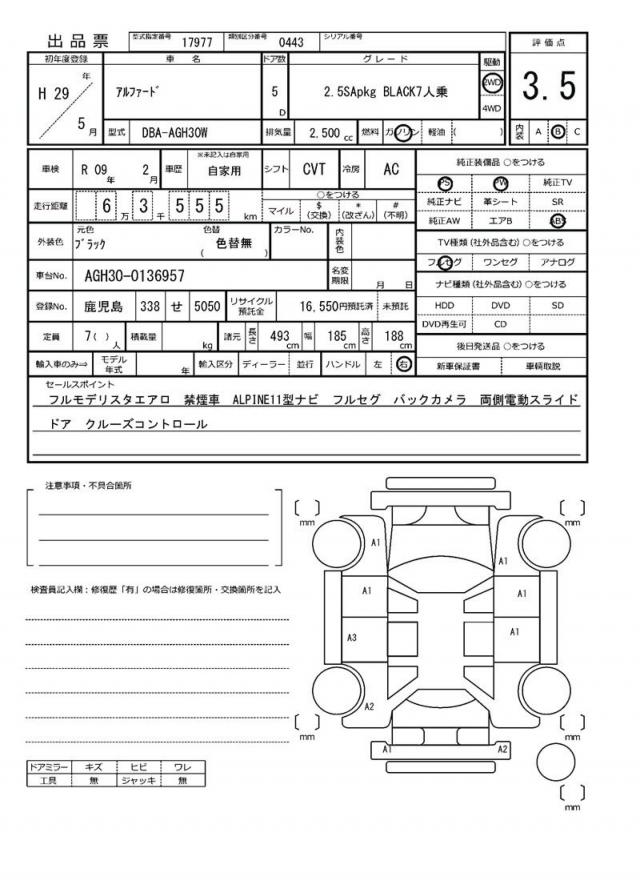 出品票 型式指定番号 17977 類別区分番号 0443 シリアル番号
初年度登録 車名 ドア数 グレード 駆動 評価点
H 29 年 5 月 アルファード 5 D 2.5SApkg BLACK7人乗 2WD 4WD 3.5
型式 DBA-AGH30W 排気量 2,500 cc 燃料 ガソリン 軽油 ( ) 内装 A B C
車検 R 09 年 2 月 車歴 ※未記入は自家用 自家用 シフト CVT 冷房 AC
走行距離 6 万 3 千 5 5 5 km ○をつける マイル $ (交換) * (改ざん) # (不明)
外装色 元色 ブラック 色替 ( 色替無 ) カラーNo. 内装色
車台No. AGH30-0136957 名変期限 月 日
登録No. 鹿児島 338 せ 5050 リサイクル預託金 16,550円預託済 未預託
定員 7( ) 人 積載量 kg 諸元 長さ 493 cm 幅 185 cm 高さ 188 cm
輸入車のみ⇒ モデル年式 年 輸入区分 ディーラー 並行 ハンドル 左 右
純正装備品 ○をつける
PS PW 純正TV
純正ナビ 革シート SR
純正AW エアB ABS
TV種類 (社外品含む) ○をつける
フルセグ ワンセグ アナログ
ナビ種類 (社外品含む) ○をつける
HDD DVD SD
DVD再生可 CD
後日発送品 ○をつける
新車保証書 車輌取説
セールスポイント
フルモデリスタエアロ 禁煙車 ALPINE11型ナビ フルセグ バックカメラ 両側電動スライド
ドア クルーズコントロール
注意事項・不具合箇所
検査員記入欄:修復歴「有」の場合は修復箇所・交換箇所を記入
ドアミラー キズ ヒビ ワレ
工具 無 ジャッキ 無
[ ] mm [ ] mm
A1 A1
A1 A1
A3 A1
A2
[ ] mm [ ] mm
A1 A2
[ ] mm